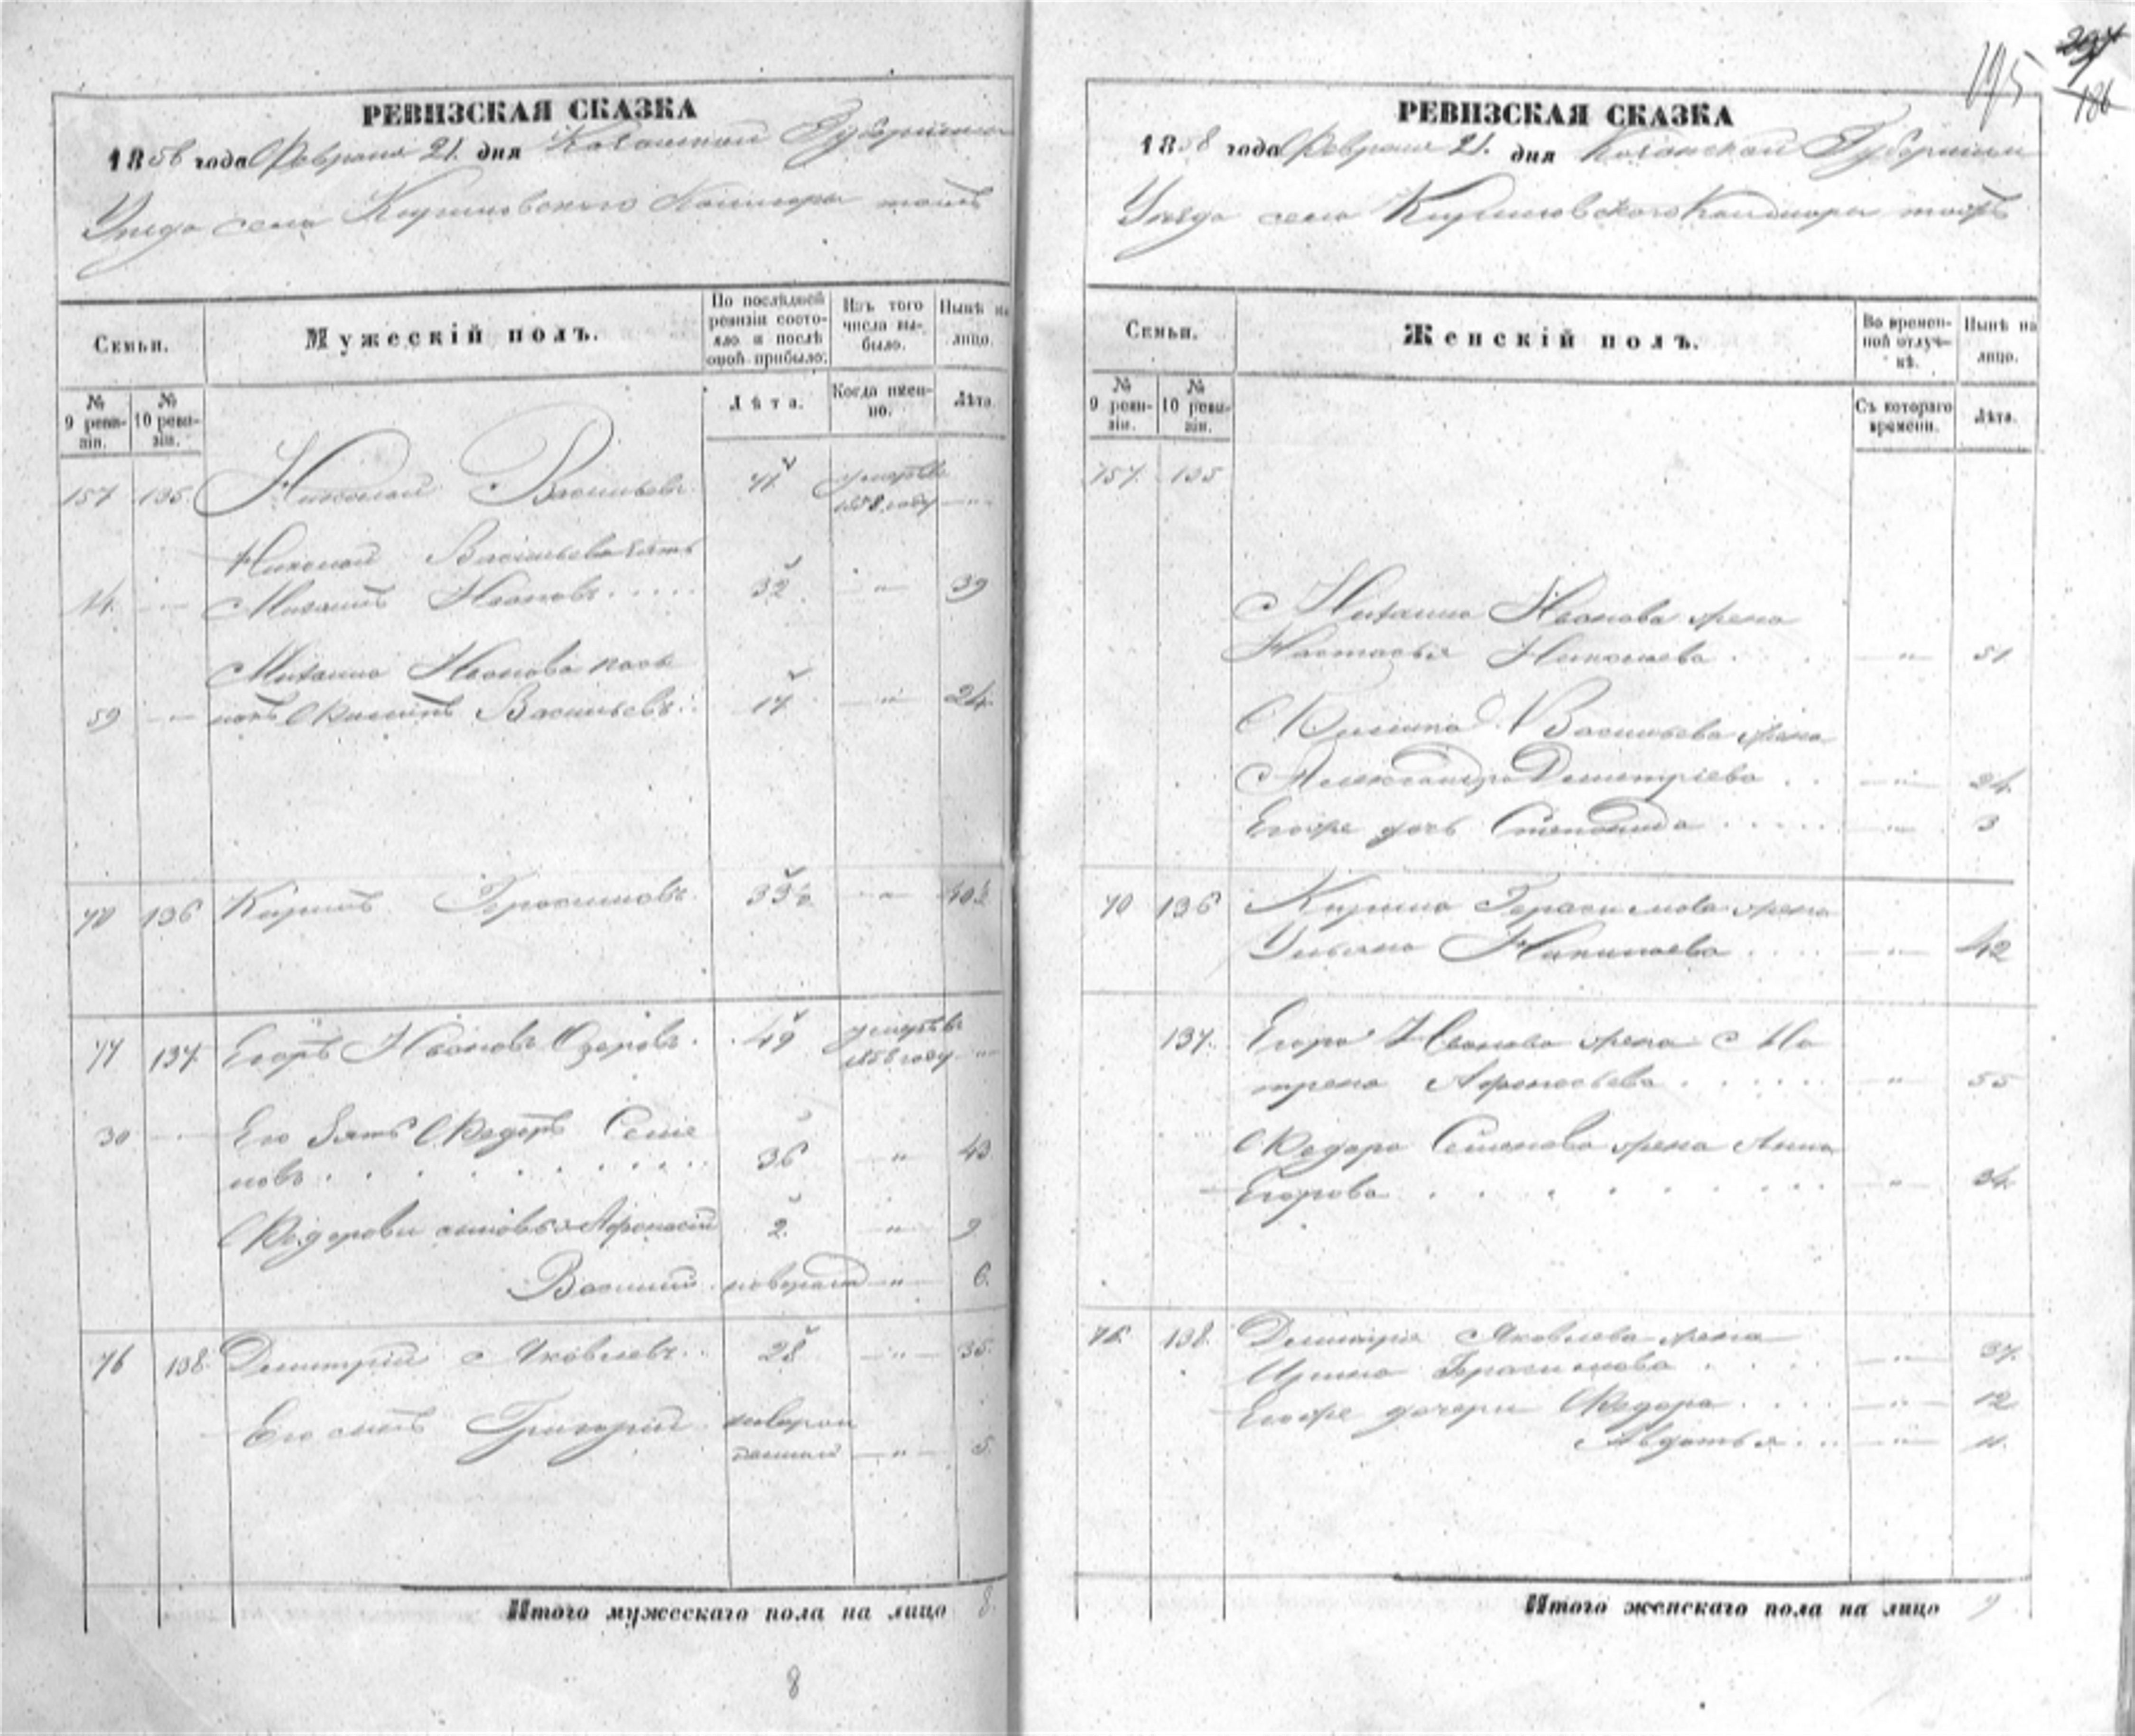 РЕВИЗСКАЯ СКАЗКА
1858 года Февраля 21. дня Казанской Губернии
Уезда села
Семьи.
Мужескій полъ.
По послѣдней ревизіи состояло и послѣ оной прибыло.
Изъ того числа выбыло.
Нынѣ на лицо.
№ 9 ревизіи.
№ 10 ревизіи.
Лѣта.
Когда именно.
Лѣта.
157 135 Николай Васильевъ 71
Николай Васильева зять
14 Михаилъ Ивановъ 32 " 39
Михаила Иванова
59 Васильевъ 17 " 24
70 136 Кирилъ Герасимовъ 33½ " 40½
77 137 Егоръ Ивановъ Озеровъ 49
30 Его зять Федоръ Семе
новъ 36 " 43
Федоровы сыновья Афонасій 2 " 9
Василий новорож " 6
76 138 Дмитрій Яковлевъ 28 " 35
Его сынъ Григорій новорож
данный " 5
Итого мужескаго пола на лицо 8
8
195
186
РЕВИЗСКАЯ СКАЗКА
1858 года Февраля 21. дня Казанской Губернии
Уезда села
Семьи.
Женскій полъ.
Во временной отлучкѣ.
Нынѣ на лицо.
№ 9 ревизіи.
№ 10 ревизіи.
Съ котораго времени.
Лѣта.
157 135
Михаила Иванова жена
Настасья Николаева " 51
Филипа Васильева жена
Александра Дмитріева " 24
Егоже дочь Степанида " 3
70 136 Кирила Герасимова жена
Ульяна " 42
137 Егора Иванова жена Ма
трена Афонасьева " 55
Федора Семенова жена Анна
Егорова " 34
76 138 Дмитрія Яковлева жена
Ирина Герасимова " 37
Егоже дочери Федора " 12
Авдотья " 11
Итого женскаго пола на лицо 9